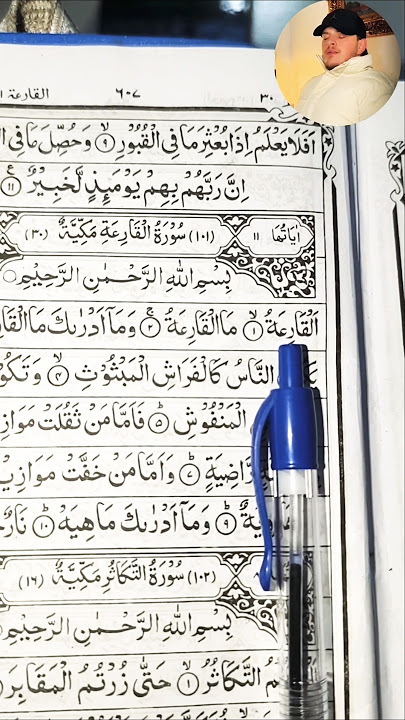 ٣٠ ٦٠٧ القارعة
اَفَلَا يَعْلَمُ اِذَا بُعْثِرَ مَا فِى الْقُبُوْرِ ۙ ٩ وَحُصِّلَ مَا فِى
اِنَّ رَبَّهُمْ بِهِمْ يَوْمَئِذٍ لَّخَبِيْرٌ ١١
اٰيَاتُهَا ١١ (١٠١) سُوْرَةُ الْقَارِعَةِ مَكِّيَّةٌ (٣٠)
بِسْمِ اللّٰهِ الرَّحْمٰنِ الرَّحِيْمِ
اَلْقَارِعَةُ ۙ ١ مَا الْقَارِعَةُ ۚ ٢ وَمَآ اَدْرٰىكَ مَا
النَّاسُ كَالْفَرَاشِ الْمَبْثُوْثِ ۙ ٤
الْمَنْفُوْشِ ؕ ٥ فَاَمَّا مَنْ ثَقُلَتْ
رَّاضِيَةٍ ؕ ٧ وَاَمَّا مَنْ خَفَّتْ
٩ وَمَآ اَدْرٰىكَ مَاهِيَهْ ؕ ١٠ نَارٌ
(١٠٢) سُوْرَةُ التَّكَاثُرِ مَكِّيَّةٌ (١٦)
بِسْمِ اللّٰهِ الرَّحْمٰنِ الرَّحِيْمِ
التَّكَاثُرُ ۙ ١ حَتّٰى زُرْتُمُ الْمَقَابِرَ